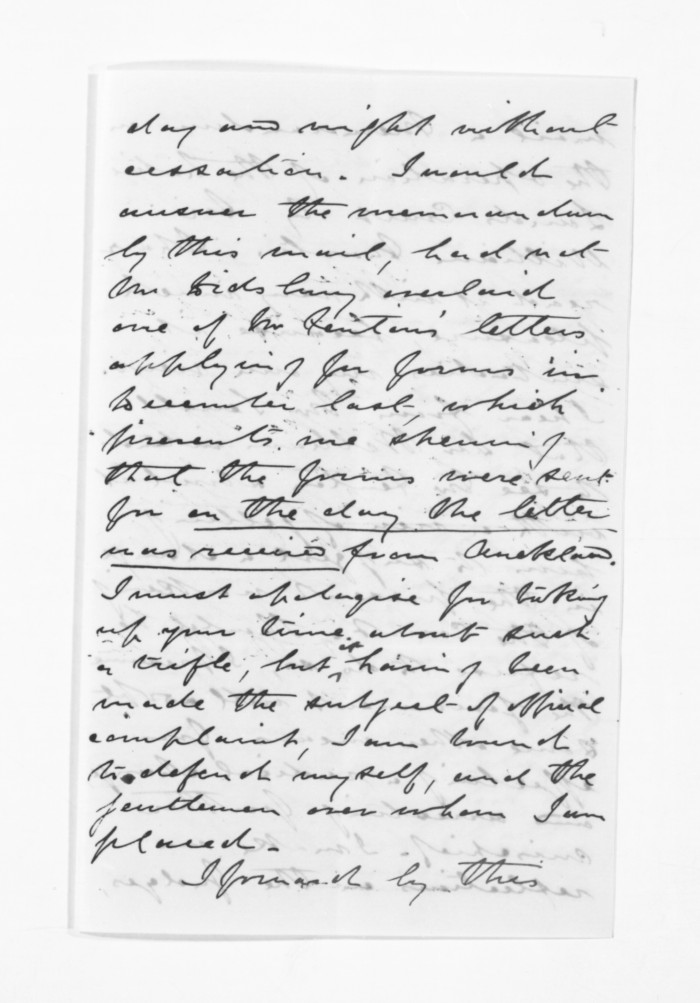 day and night without
cessation. I would
answer the memorandum
by this mail, had not
Mr Didsbury mislaid
one of Mr Fenton's letters
applying for forms in
December last, which
prevents me shewing
that the forms were sent
for on the day the letter
was received from Auckland.
I must apologise for taking
up your time about such
a trifle, but it having been
made the subject of official
complaint, I am bound
to defend myself, and the
gentlemen over whom I am
placed.
I forward by this